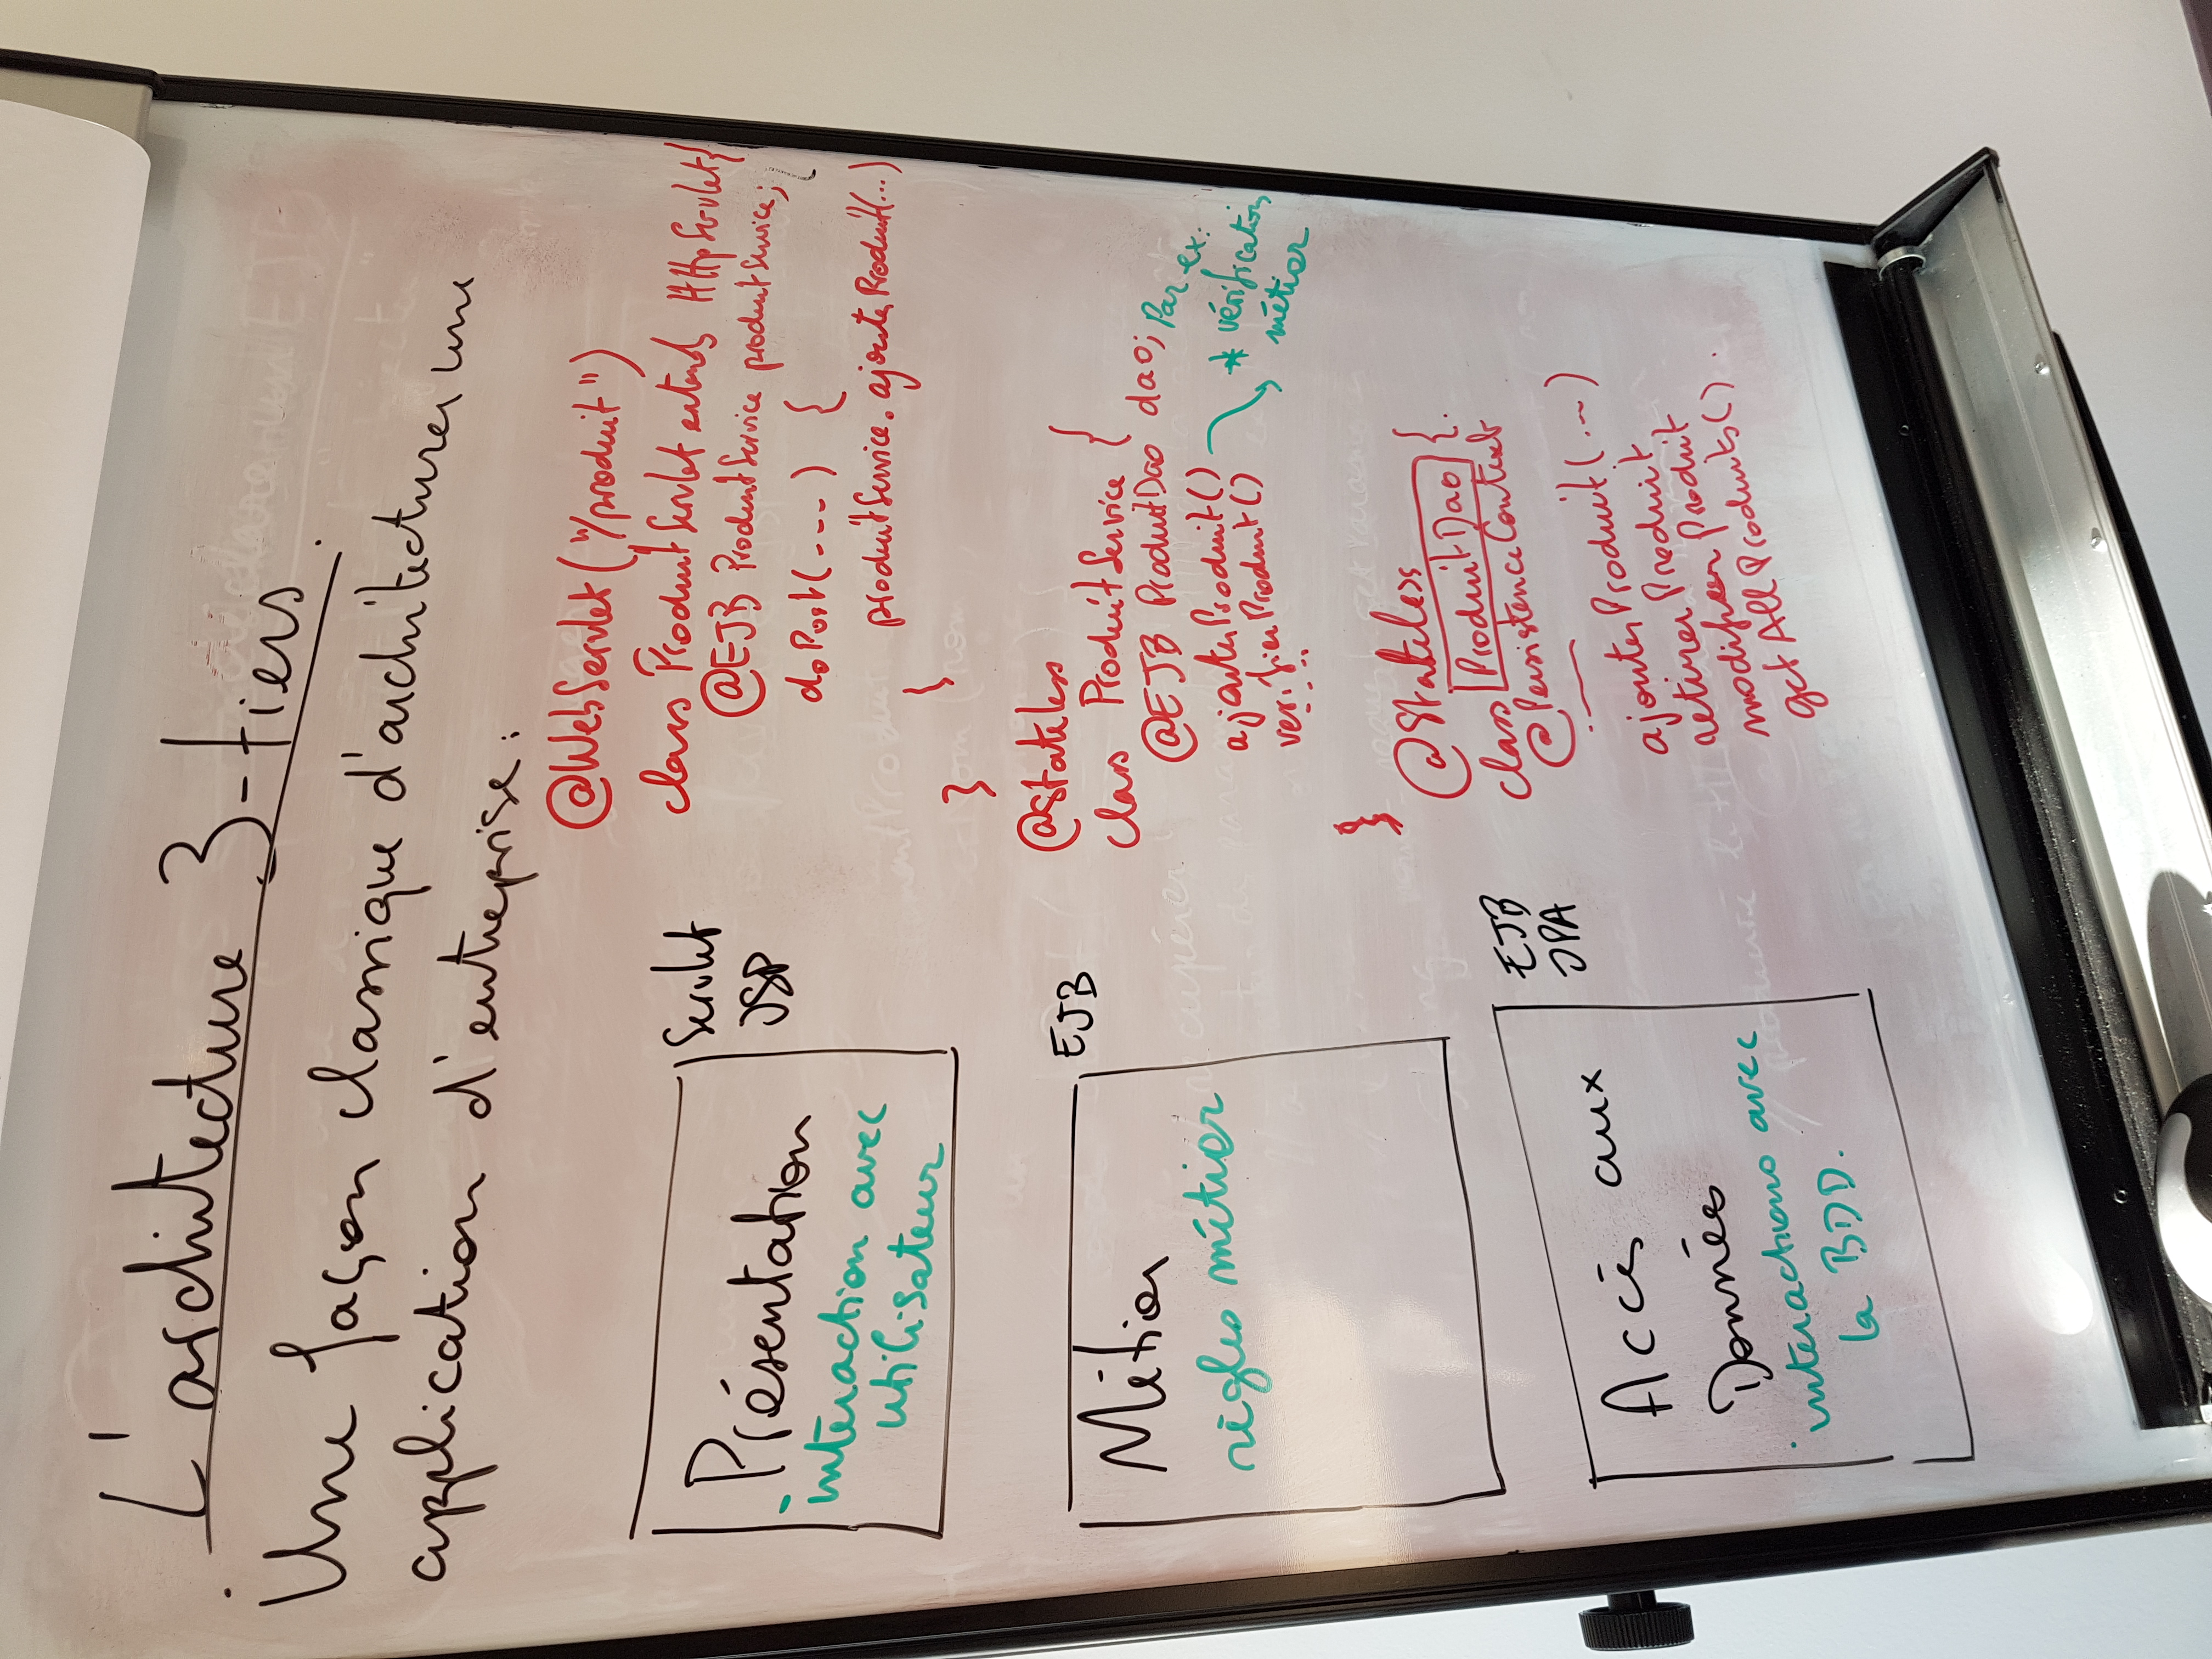 L'architecture 3-tiers.
Une façon classique d'architecturer une
application d'entreprise :
Présentation
interaction avec
utilisateur
Servlet
JSP
@WebServlet("/produit")
class ProduitServlet extends HttpServlet {
@EJB ProduitService produitService;
doPost(---) {
produitService.ajouterProduit(...)
}
}
Métier
règles métier
EJB
@Stateless
class ProduitService {
@EJB ProduitDao dao;
ajouterProduit()
verifierProduit()
...
}
Par ex:
* vérifications
métier
Accès aux
Données
interactions avec
la BDD.
EJB
JPA
@Stateless
class ProduitDao {
@PersistenceContext
ajouterProduit(...)
retirerProduit
modifierProduit
getAllProduits().